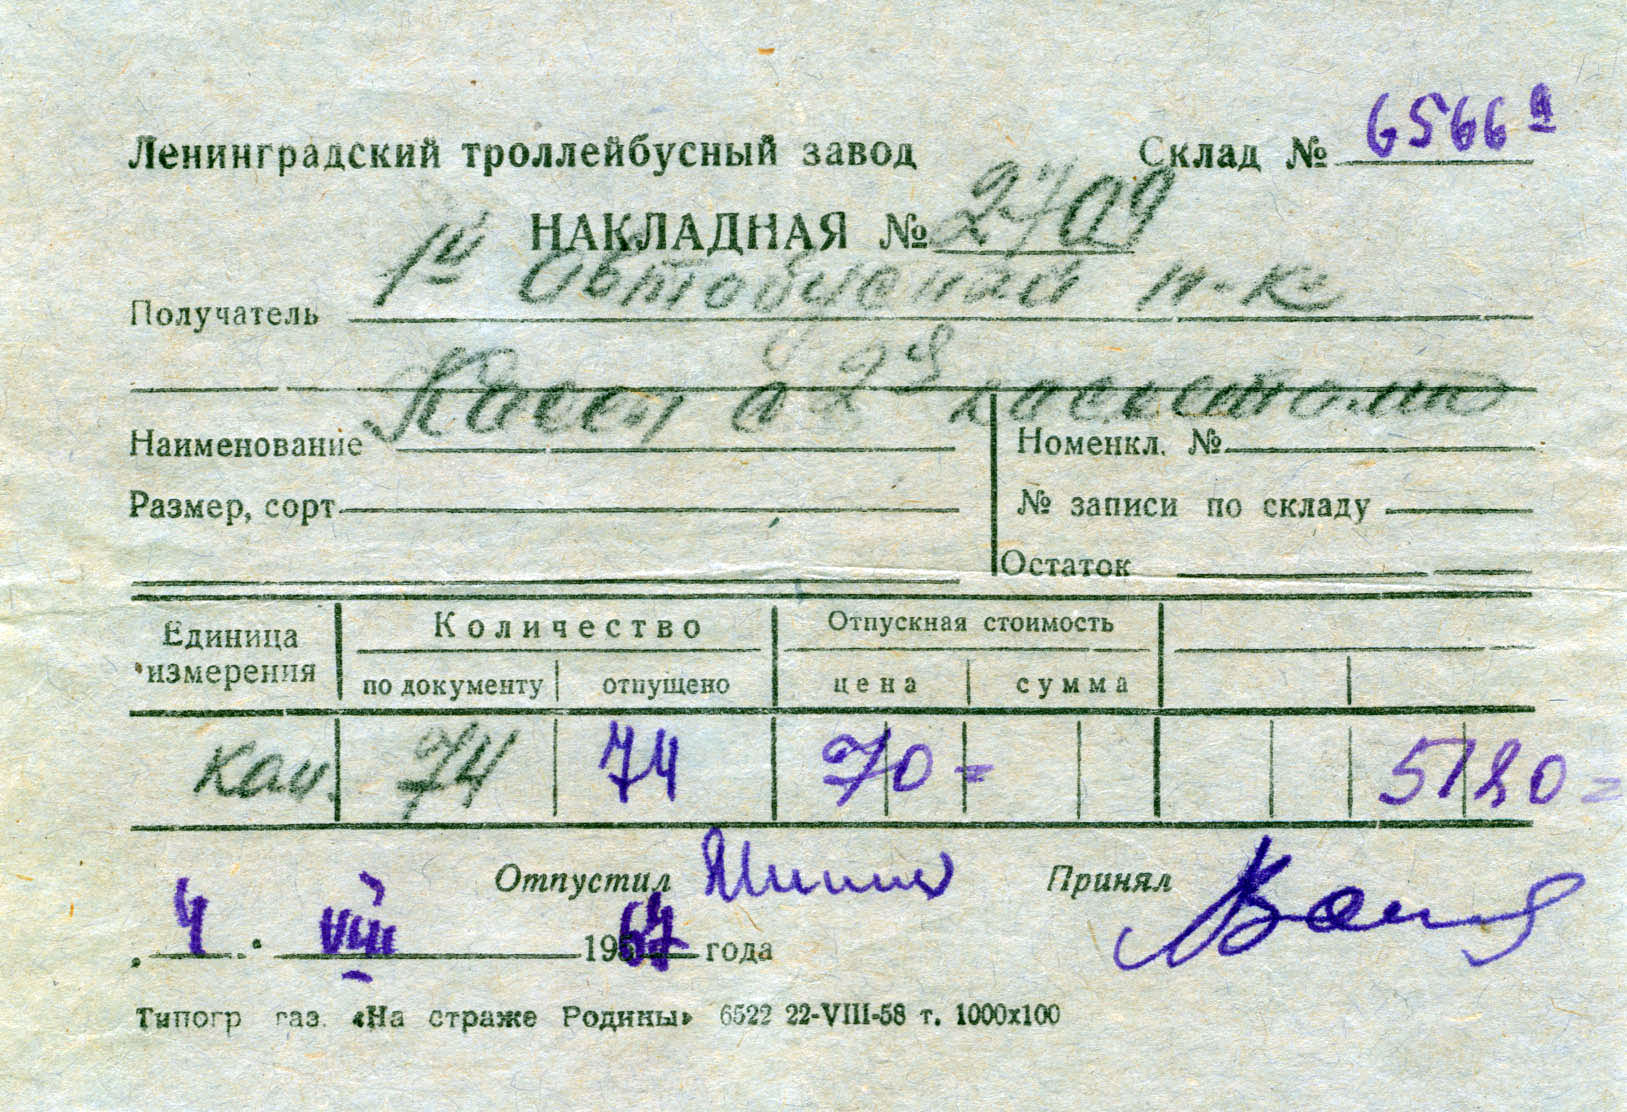 Ленинградский троллейбусный завод Склад № 6566
НАКЛАДНАЯ № 2709
Получатель 1й Автобусный п-к
Кассы с 2я
Наименование Номенкл. №
Размер, сорт № записи по складу
Остаток
Единица измерения Количество Отпускная стоимость
по документу отпущено цена сумма
74 74 70= 5180=
Отпустил Принял
4. VIII 1967 года
Типогр газ. «На страже Родины» 6522 22-VIII-58 т. 1000х100